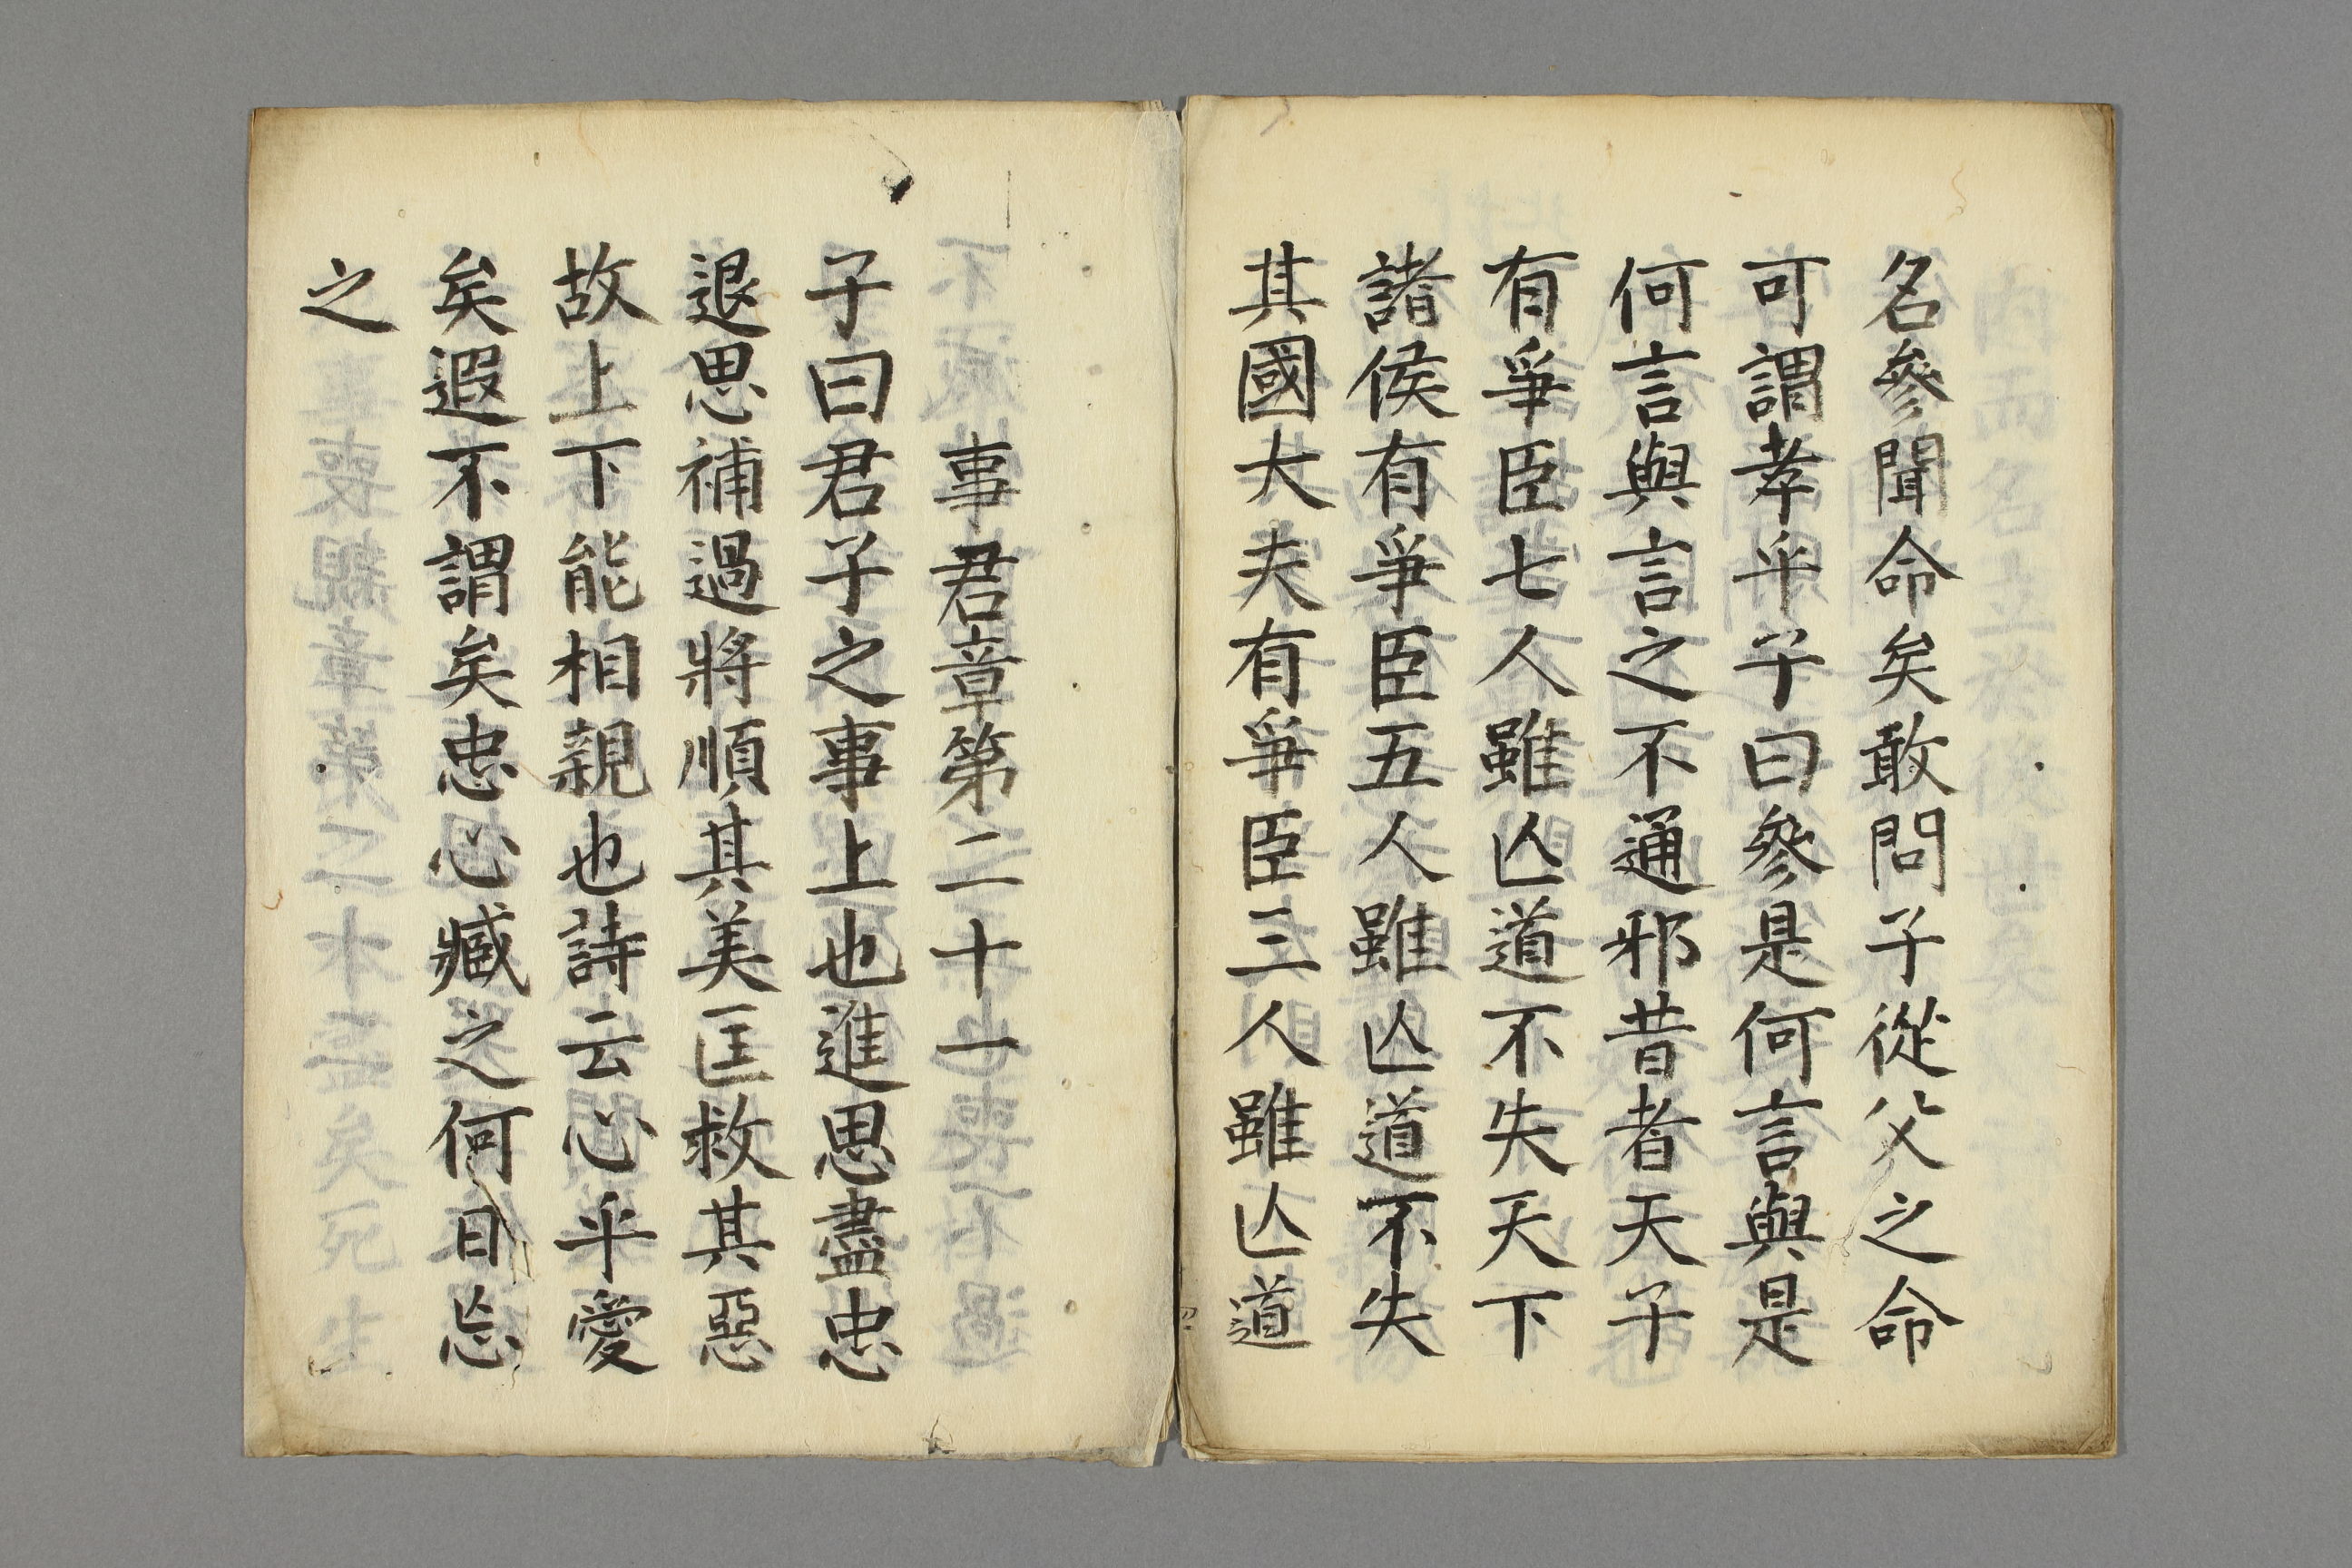 名參聞命矣敢問子從父之命
可謂孝乎子曰參是何言與是
何言與言之不通邪昔者天子
有爭臣七人雖亾道不失天下
諸侯有爭臣五人雖亾道不失
其國大夫有爭臣三人雖亾道
事君章第二十一
子曰君子之事上也進思盡忠
退思補過將順其美匡救其惡
故上下能相親也詩云心乎愛
矣遐不謂矣忠心臧之何日忘
之